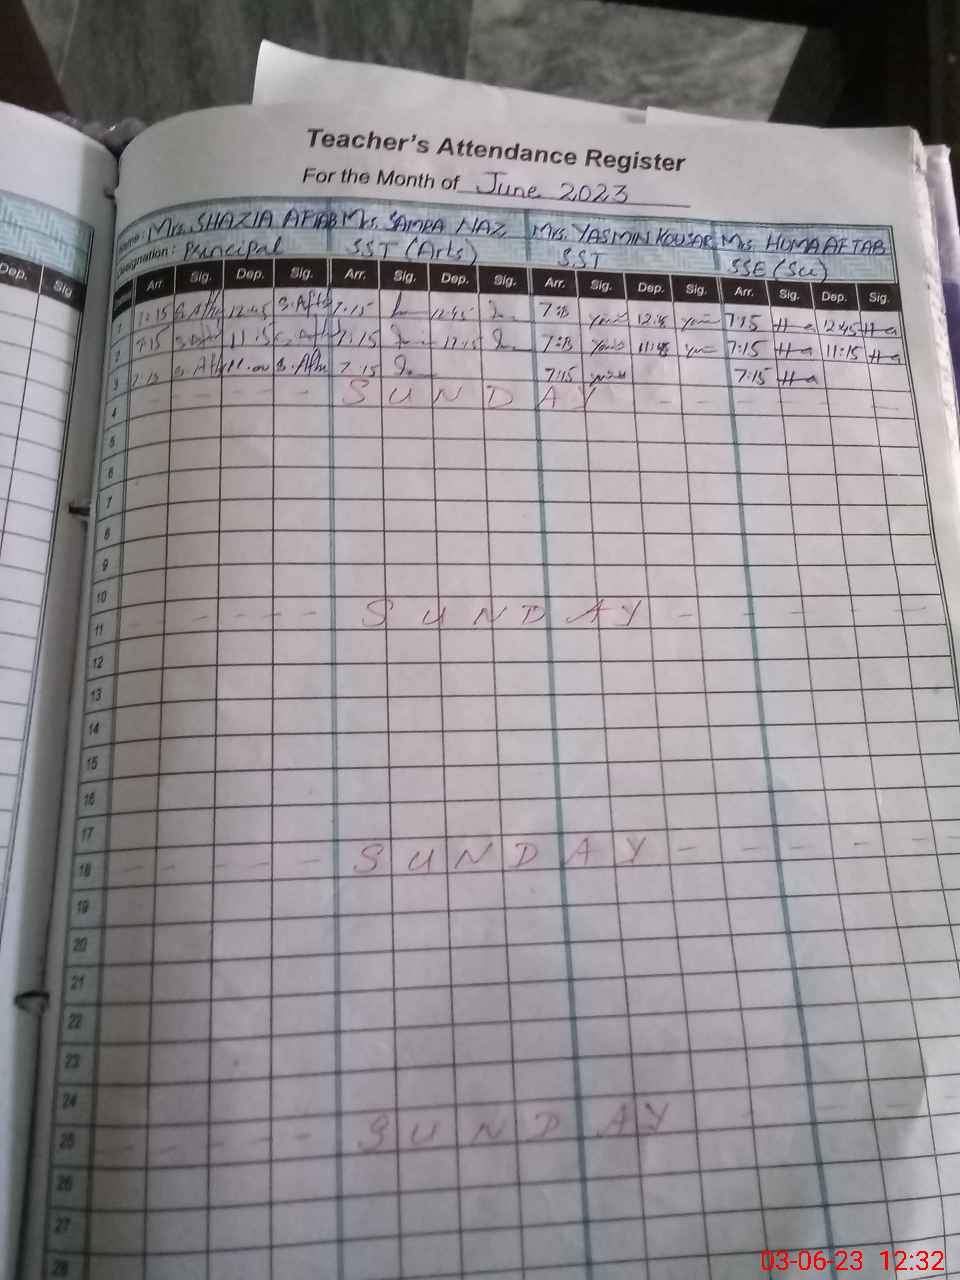 Teacher's Attendance Register
For the Month of June 2023
Name: Mrs. SHAZIA AFTAB Mrs. SAMRA NAZ Mrs. YASMIN KOUSAR Mrs. HUMA AFTAB
Designation: Principal SST (Arts) SST SSE (Sci)
Dep. Sig
Arr. Sig. Dep. Sig. Arr. Sig. Dep. Sig. Arr. Sig. Dep. Sig. Arr. Sig. Dep. Sig.
1 7:15 12:45 7:15 12:45 7:15 12:45 7:15 12:45
2 7:15 11:15 7:15 11:15 7:15 7:15 11:15
3 7:15 7:15 7:15 7:15
4 SUNDAY
5
6
7
8
9
10
11 SUNDAY
12
13
14
15
16
17
18 SUNDAY
19
20
21
22
23
24
25 SUNDAY
26
27
28
03-06-23 12:32